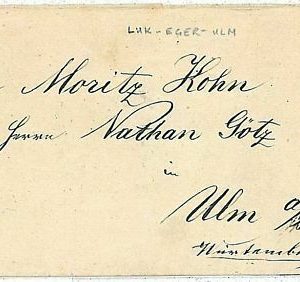 LUK-EGER-ULM
Moritz Kohn
Herrn Nathan Götz
in
Ulm a
Würtemb